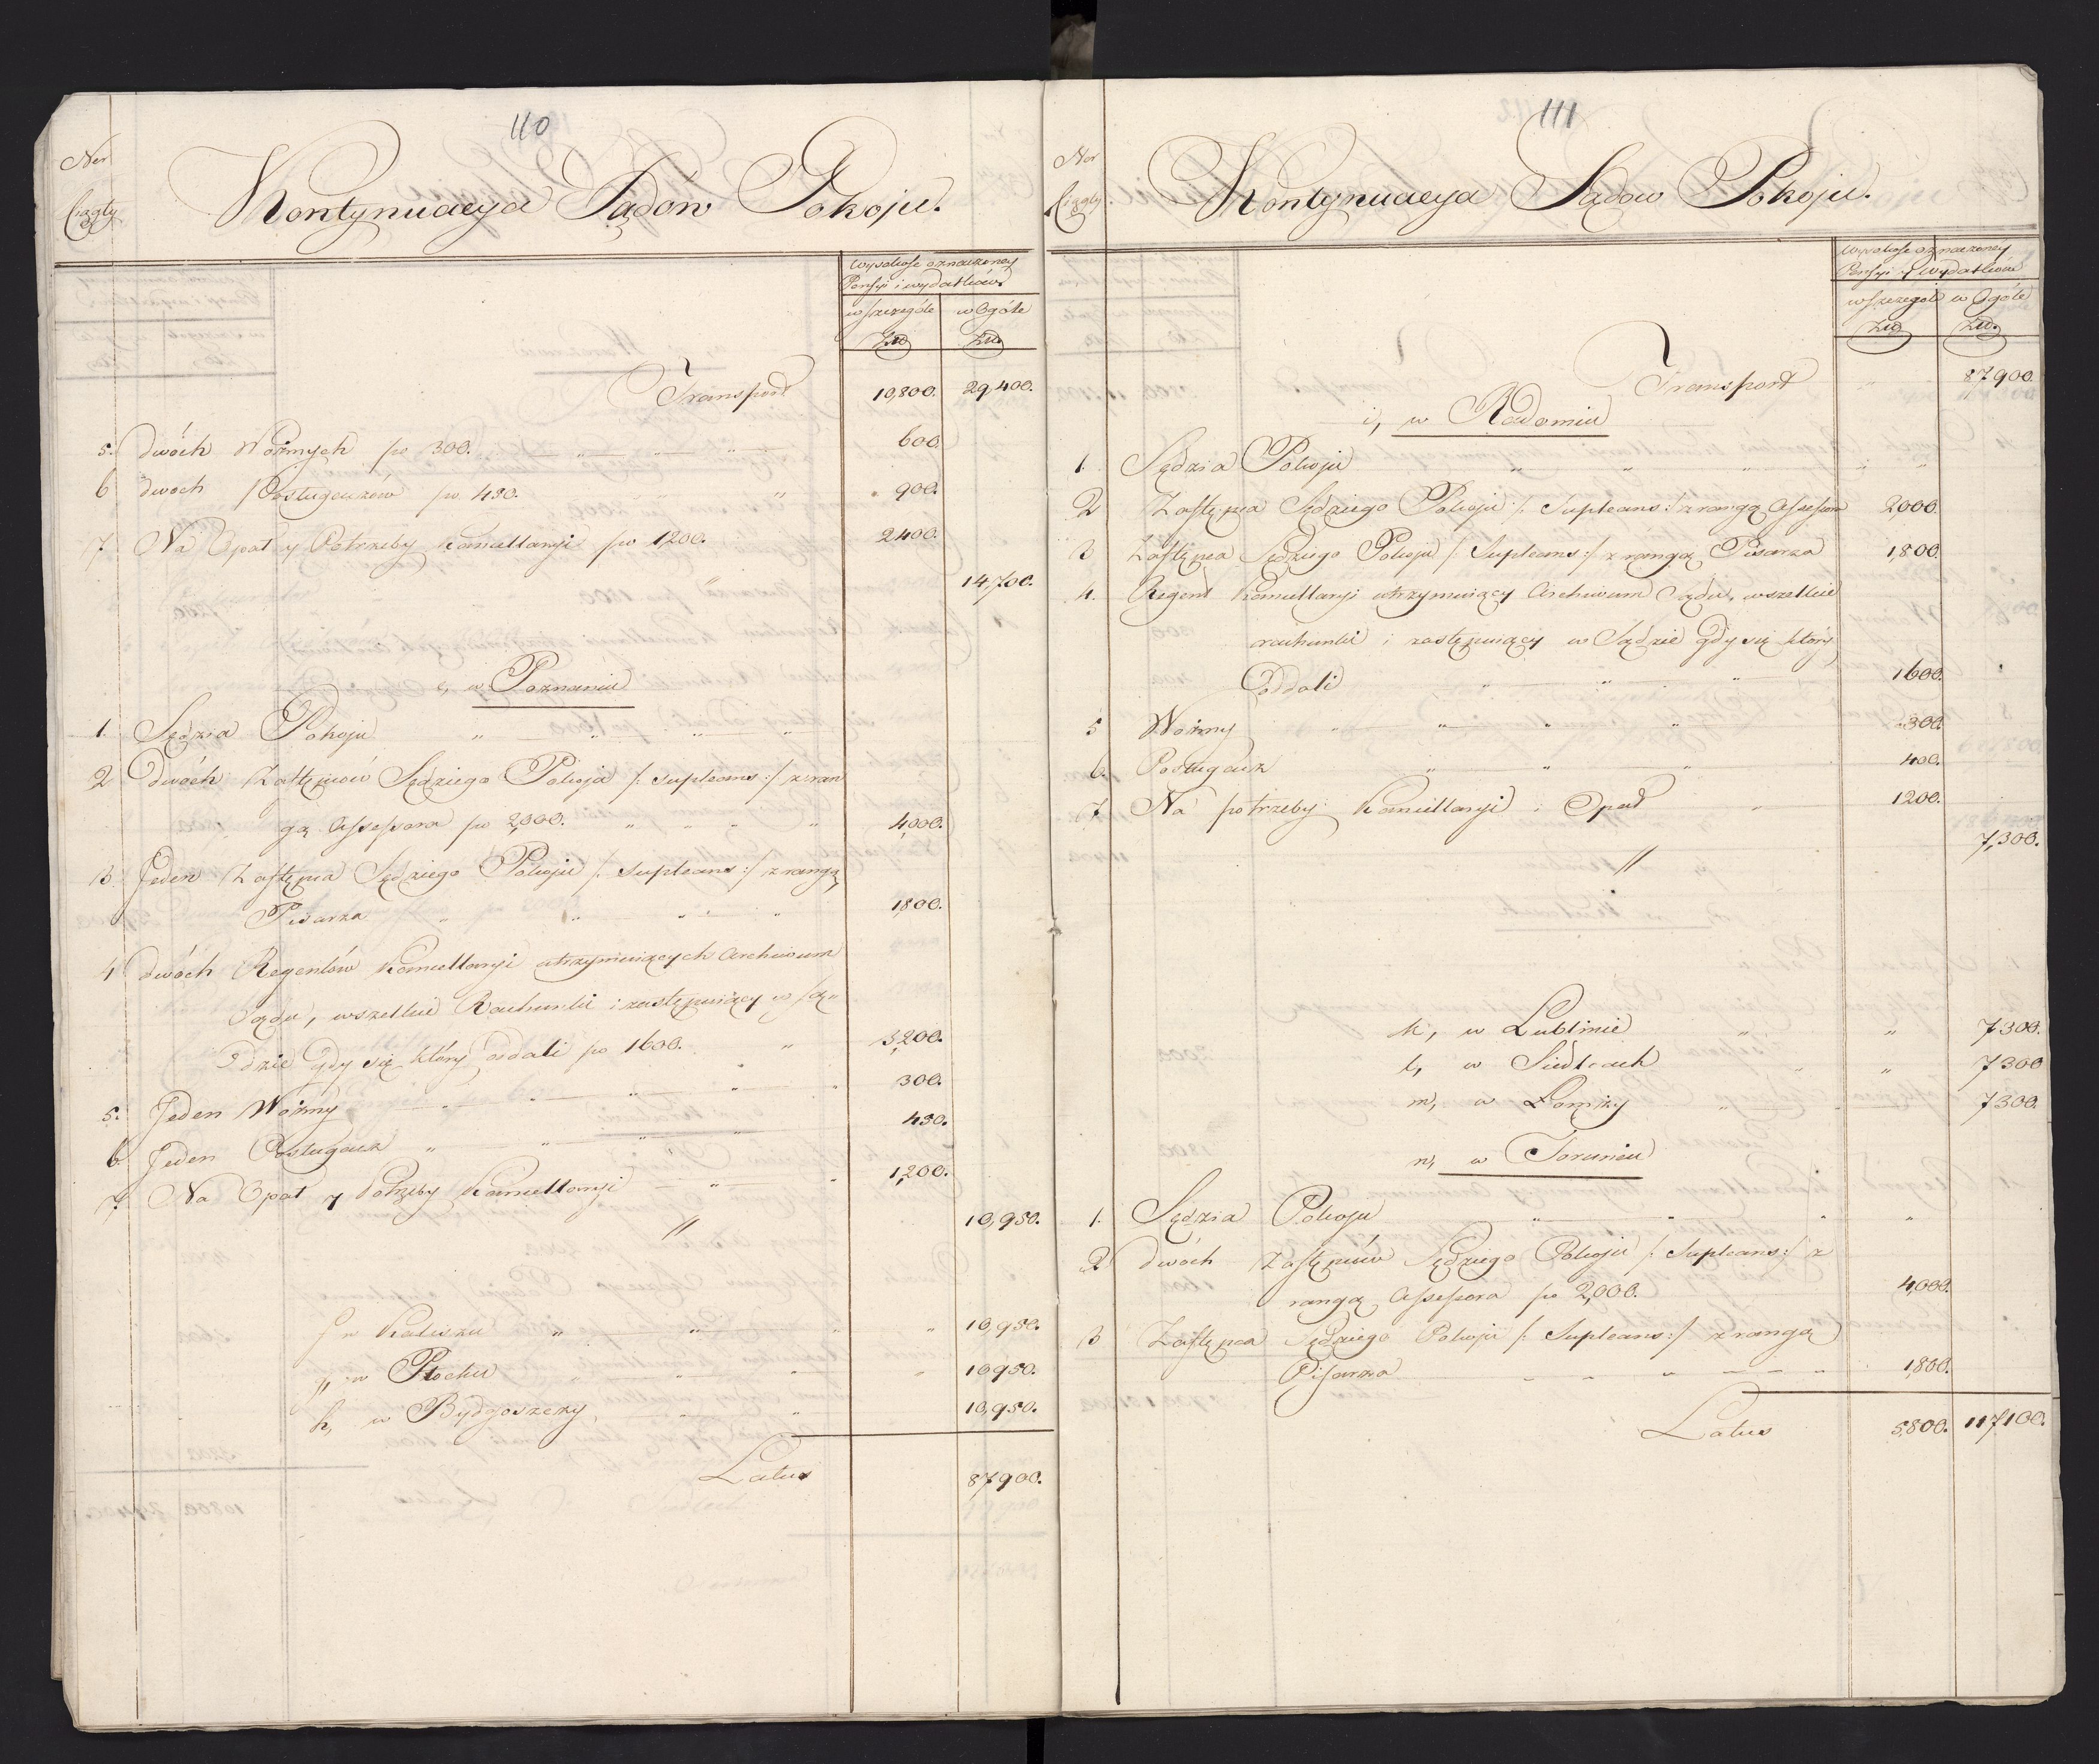 110
Ner
Ciągły
Kontynuacya Sądów Pokoju.
wysokość oznaczoney
Pensyi i wydatków
w szczególe w Ogóle
Zło Zło
Transport 10,800. 29,400.
5. dwóch Woźnych po 300. 600.
6 dwoch Posługaczów po 450. 900.
7 Na Opał y Potrzeby Kancellaryi po 1200. 2400.
" 14,700.
e, w Poznaniu
1. Sędzia Pokoju " " " "
2 Dwóch Zastępców Sędziego Pokoju /: Supleans :/ z ran
gą Assessora po 2,000. " " " " 4,000.
3. Jeden Zastępca Sędziego Pokoju /: Supleans :/ z rangą
Pisarza " " " " 1,800.
4 dwóch Regentów Kancellaryi utrzymuiących Archiwum
Sądu, wszelkie Rachunki i zastępuiący w Są„
dzie gdy się który oddali po 1600. " 3,200.
5. Jeden Woźny " " " " 300.
6. Jeden Posługacz " " " " 450.
7. Na Opał y Potrzeby Kancellaryi " " " 1,200.
// 10,950.
f, w Kaliszu " " " " 10,950.
g, w Płocku " " " " 10,950.
h, w Bydgoszczy " " 10,950.
Latus 87,900.
111
Ner
Ciągły
Kontynuacya Sądow Pokoju.
wysokość oznaczoney
Pensyi i wydatków
w szczególe w Ogóle
Zło Zło.
Transport " 87,900.
i, w Radomiu
1. Sędzia Pokoju " " " " "
2 Zastępca Sędziego Pokoju /: Supleans :/ z rangą Assessora 2,000.
3 Zastępca Sędziego Pokoju /: Supleans :/ z rangą Pisarza 1,800.
4. Regent Kancellaryi utrzymuiący Archiwum Sądu, wszelkie
rachunki i zastępuiący w Sądzie gdy się który
Oddali " " " " 1600.
5 Woźny " " " " 300.
6. Posługacz " " " 400.
7 Na potrzeby Kancellaryi i Opał " 1200.
// 7,300.
k, w Lublinie " " 7300.
l, w Siedlcach " " 7300
m, w Łomży " " 7300.
n, w Toruniu
1. Sędzia Pokoju " " " "
2 dwóch Zastępców Sędziego Pokoju /: Supleans :/ z
rangą Assessora po 2,000. 4,000.
3 Zastępca Sędziego Pokoju /: Supleans :/ z rangą
Pisarza " " " " " 1,800.
Latus 5,800. 117,100.